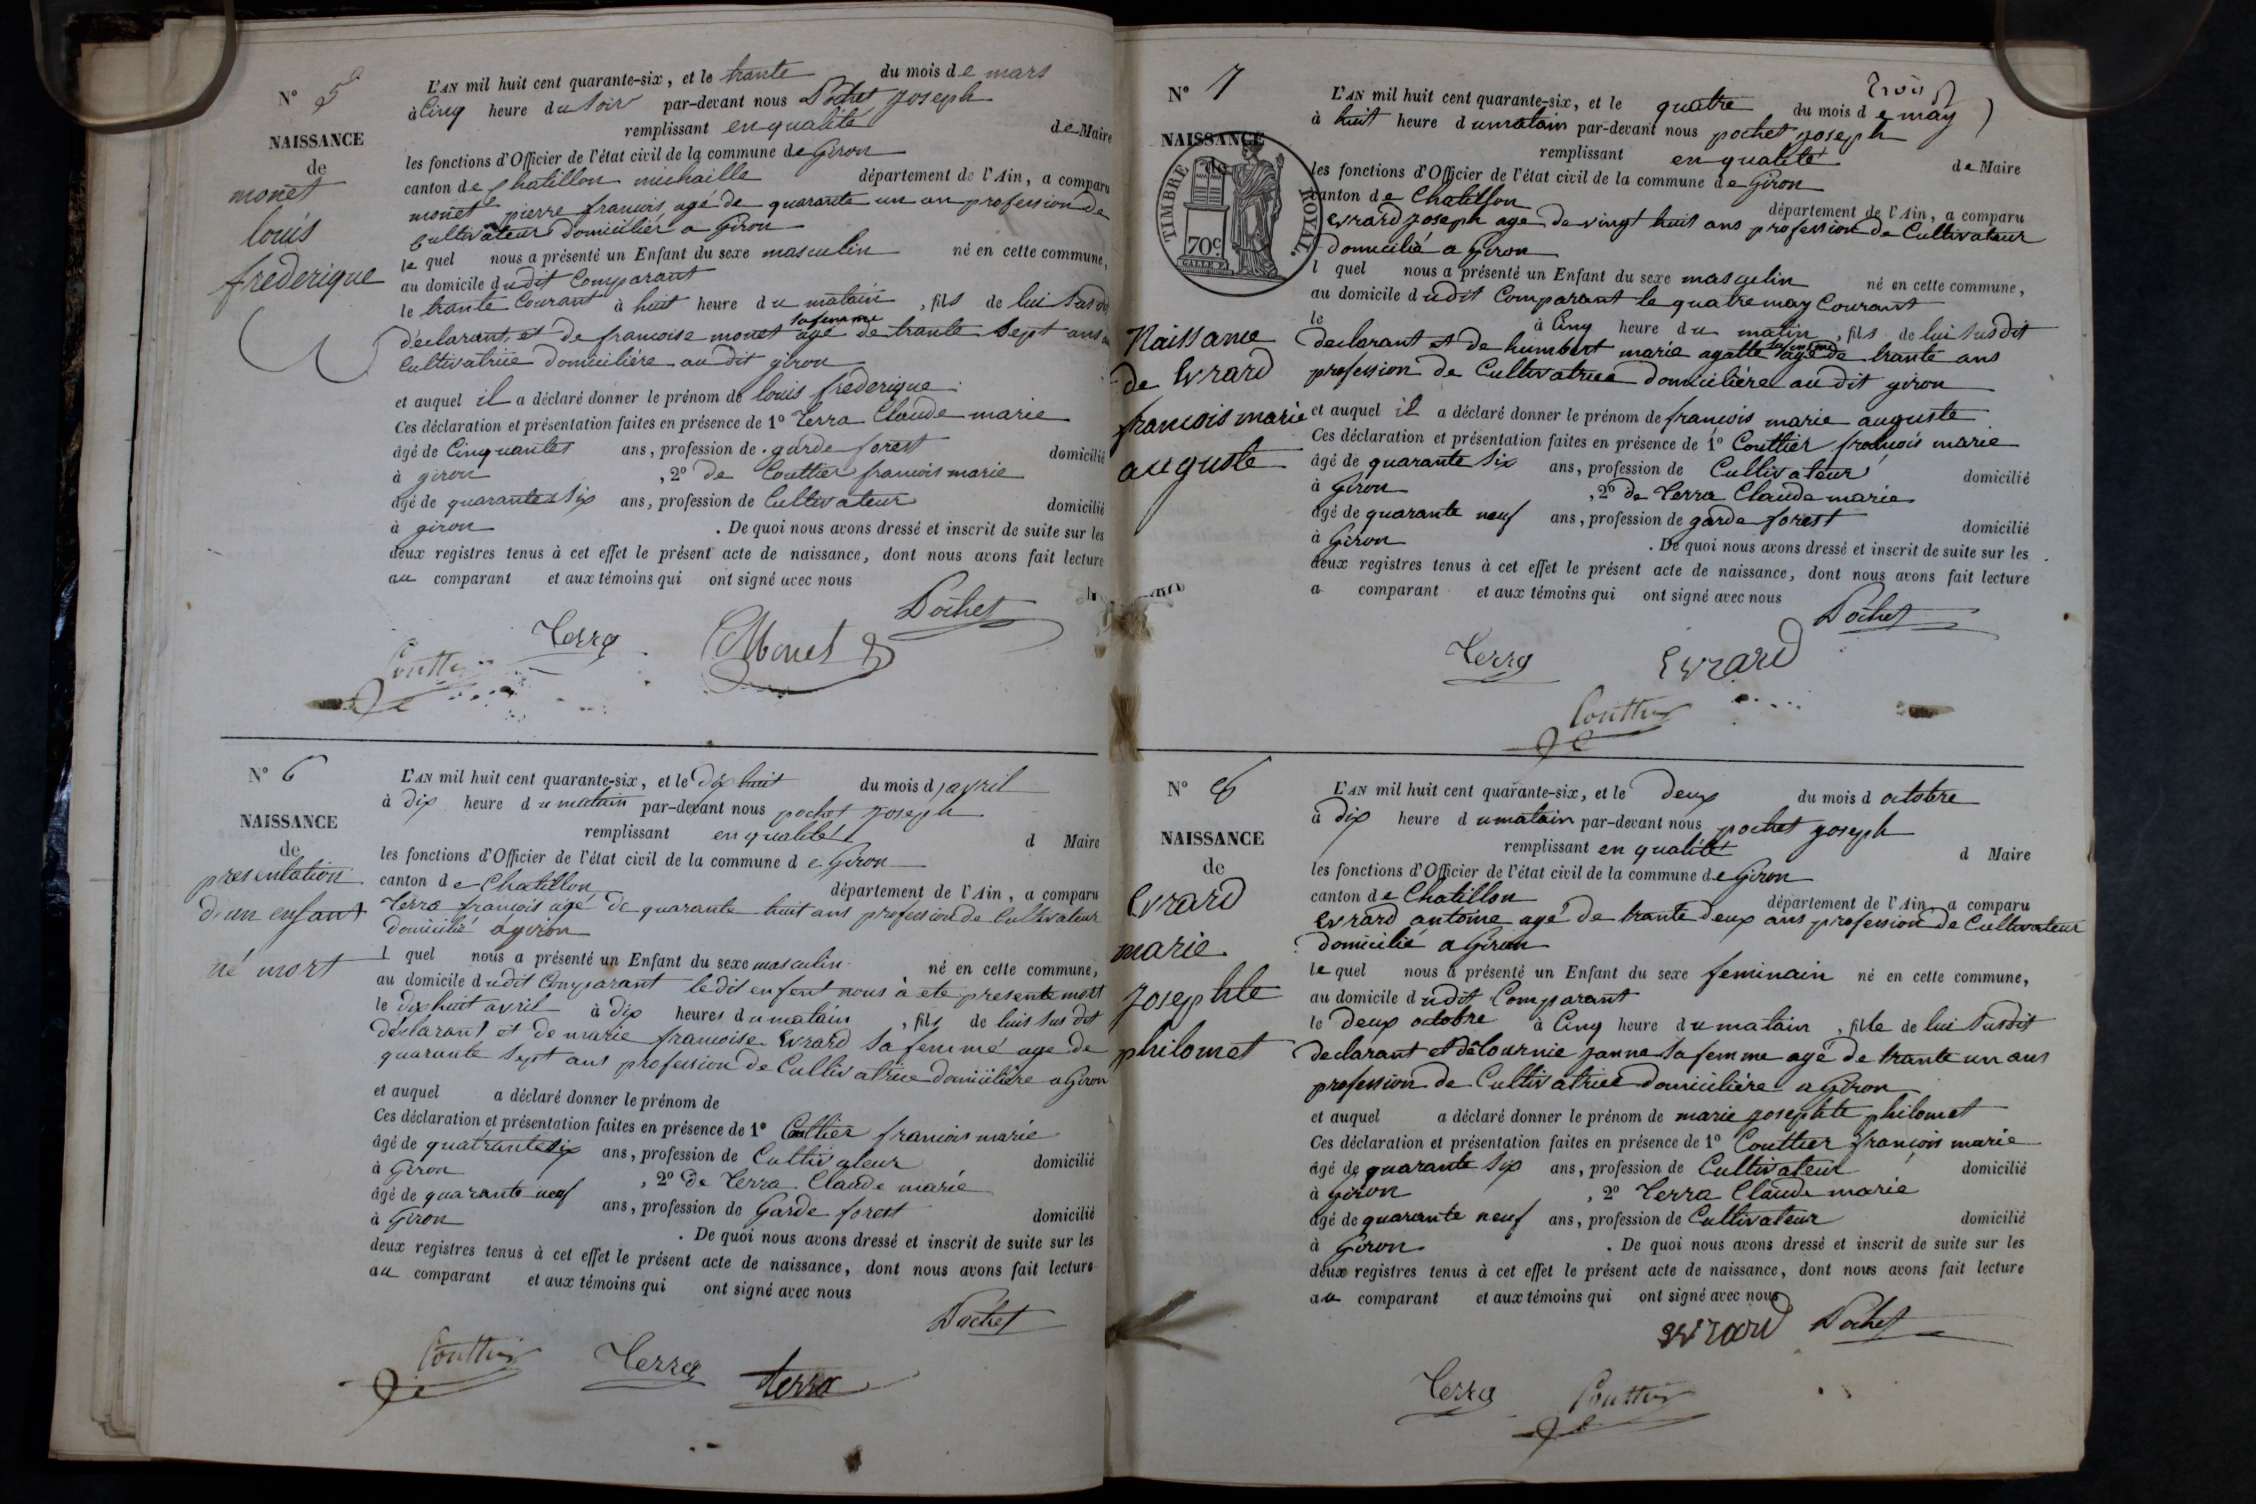 N° 5
NAISSANCE
de
monet
louis
frederique
L'AN mil huit cent quarante-six, et le trante du mois de mars
à Cinq heure du Soir par-devant nous Pochet joseph
remplissant en qualité de Maire
les fonctions d'Officier de l'état civil de la commune de Giron
canton de Chatillon michaille département de l'Ain, a comparu
monet pierre francois agé de quarante un an profession de
Cultivateur domicilié a Giron
le quel nous a présenté un Enfant du sexe masculin né en cette commune,
au domicile dudit Comparant
le trante Courant à huit heure du matain, fils de lui susdit
déclarant, et de francoise monet sa femme agé de trante Sept ans
Cultivatrice domiciliére au dit giron
et auquel il a déclaré donner le prénom de louis frederique
Ces déclaration et présentation faites en présence de 1° Terra Claude marie
âgé de Cinquantes ans, profession de garde forest domicilié
à giron, 2° de Couttier francois marie
âgé de quarante Six ans, profession de Cultivateur domicilié
à giron. De quoi nous avons dressé et inscrit de suite sur les
deux registres tenus à cet effet le présent acte de naissance, dont nous avons fait lecture
au comparant et aux témoins qui ont signé avec nous
Pochet
Terra
Monet
Couttier
N° 6
NAISSANCE
de
presentation
d'un enfant
né mort
L'AN mil huit cent quarante-six, et le dix huit du mois d'avril
à dix heure du matain par-devant nous pochet joseph
remplissant en qualité d Maire
les fonctions d'Officier de l'état civil de la commune de Giron
canton de Chatillon département de l'Ain, a comparu
Terra francois agé de quarante huit ans profession de Cultivateur
domicilié a giron
l quel nous a présenté un Enfant du sexe masculin né en cette commune,
au domicile dudit Comparant le dit enfent nous à eté presente mort
le dix huit avril à dix heures du matain, fils de luis sus dit
déclarant et de marie francoise Evrard sa femme age de
quarante Sept ans profession de Cultivatrice domiciliére a Giron
et auquel a déclaré donner le prénom de
Ces déclaration et présentation faites en présence de 1° Couttier francois marie
âgé de quatrante six ans, profession de Cultivateur domicilié
à Giron, 2° de Terra Claude marie
âgé de quarante neuf ans, profession de Garde forest domicilié
à Giron. De quoi nous avons dressé et inscrit de suite sur les
deux registres tenus à cet effet le présent acte de naissance, dont nous avons fait lecture
au comparant et aux témoins qui ont signé avec nous
Pochet
Couttier Terra terra
N° 7
NAISSANCE
de
TIMBRE ROYAL
70c
Naissance
de Evrard
francois marie
auguste
trois
L'AN mil huit cent quarante-six, et le quatre du mois de may
à huit heure dumatain par-devant nous pochet joseph
remplissant en qualité de Maire
les fonctions d'Officier de l'état civil de la commune de Giron
canton de Chatillon département de l'Ain, a comparu
Evrard joseph age de vingt huit ans profession de Cultivateur
domicilié a Giron
l quel nous a présenté un Enfant du sexe masculin né en cette commune,
au domicile dudit Comparant le quatre may Courant
le à Cinq heure du matin, fils de lui susdit
declarant et de humbert marie agatte sa femme agé de trante ans
profession de Cultivatrice domiciliére au dit giron
et auquel il a déclaré donner le prénom de francois marie auguste
Ces déclaration et présentation faites en présence de 1° Couttier francois marie
âgé de quarante Six ans, profession de Cultivateur domicilié
à Giron, 2° de Terra Claude marie
âgé de quarante neuf ans, profession de garde forest domicilié
à Giron. De quoi nous avons dressé et inscrit de suite sur les
deux registres tenus à cet effet le présent acte de naissance, dont nous avons fait lecture
a comparant et aux témoins qui ont signé avec nous
Pochet
Terra Evrard
Couttier
N° 8
NAISSANCE
de
Evrard
marie
josephte
philomet
L'AN mil huit cent quarante-six, et le deux du mois d octobre
à dix heure dumatain par-devant nous pochet joseph
remplissant en qualité d Maire
les fonctions d'Officier de l'état civil de la commune de Giron
canton de Chatillon département de l'Ain, a comparu
Evrard antoine agé de trante deux ans profession de Cultivateur
domicilié a Giron
le quel nous a présenté un Enfant du sexe feminain né en cette commune,
au domicile dudit Comparant
le deux octobre à Cinq heure du matain, fille de lui susdit
declarant et de tournie janne sa femme agé de trante un ans
profession de Cultivatrice domiciliére a Giron
et auquel a déclaré donner le prénom de marie josephte philomet
Ces déclaration et présentation faites en présence de 1° Couttier françois marie
âgé de quarante Six ans, profession de Cultivateur domicilié
à Giron, 2° Terra Claude marie
âgé de quarante neuf ans, profession de Cultivateur domicilié
à Giron. De quoi nous avons dressé et inscrit de suite sur les
deux registres tenus à cet effet le présent acte de naissance, dont nous avons fait lecture
au comparant et aux témoins qui ont signé avec nous
Evrard Pochet
Terra Couttier